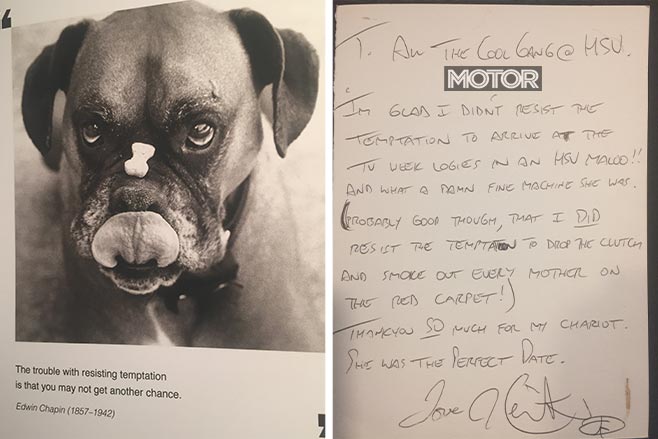 “
The trouble with resisting temptation
is that you may not get another chance.
Edwin Chapin (1857–1942)
”
T. All THE COOL GANG @ HSV.
MOTOR
I'M GLAD I DIDN'T RESIST THE
TEMPTATION TO ARRIVE AT THE
TV WEEK LOGIES IN AN HSV MALOO!!
AND WHAT A DAMN FINE MACHINE SHE WAS.
(PROBABLY GOOD THOUGH, THAT I DID
RESIST THE TEMPTATION TO DROP THE CLUTCH
AND SMOKE OUT EVERY MOTHER ON
THE RED CARPET!)
THANKYOU SO MUCH FOR MY CHARIOT.
SHE WAS THE PERFECT DATE.
Love